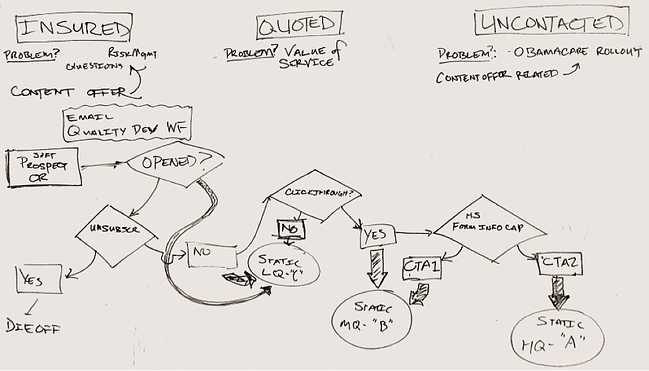 INSURED
PROBLEM? RISK MGMT
QUESTIONS
CONTENT OFFER
QUOTED
PROBLEM? VALUE of
SERVICE
UNCONTACTED
PROBLEM?: - OBAMACARE ROLLOUT
CONTENT OFFER RELATED
EMAIL
QUALITY DEV WF
SOFT
PROSPECT
OR
OPENED?
UNSUBSCR
YES
DIE OFF
NO
CLICKTHROUGH?
NO
STATIC
LQ-"C"
YES
STATIC
MQ-"B"
HS
FORM INFO CAP
CTA1
CTA2
STATIC
MQ-"A"